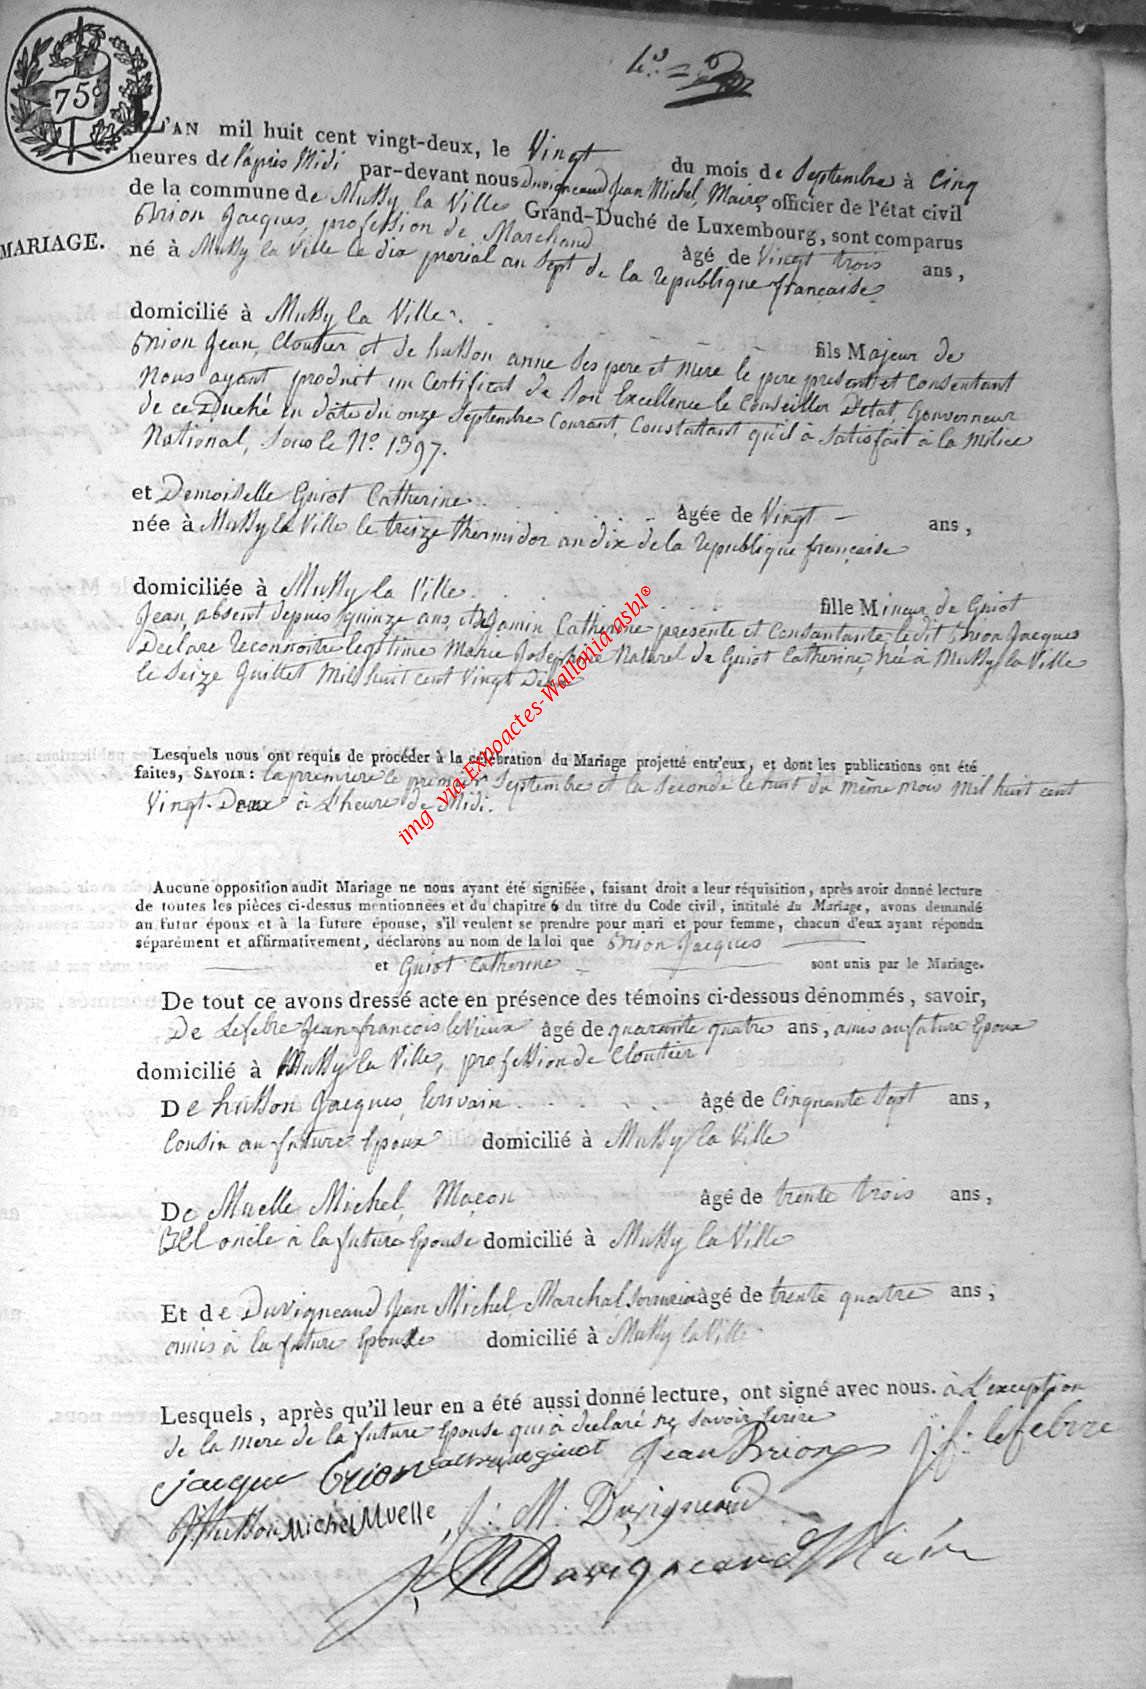 75c
L'AN mil huit cent vingt-deux, le Vingt du mois de Septembre à Cinq
heures de l'après Midi par-devant nous Duvigneaud Jean Michel, Maire, officier de l'état civil
de la commune de Mussy la Ville Grand-Duché de Luxembourg, sont comparus
MARIAGE.
Brion Jacques, profession de Marchand âgé de Vingt trois ans,
né à Mussy la Ville le dix prerial an Sept de la republique française
domicilié à Mussy la Ville
fils Majeur de
Brion Jean, Cloutier et de husson anne Ses pere et mere le pere present et Consentant
Nous ayant produit un Certificat de Son Excellence le Conseiller D'Etat, Gouverneur
de ce Duché en date du onze Septembre Courant, Constattant qu'il à Satisfait à la Milice
National, Sous le N° 1397.
et Demoiselle Guiot Catherine âgée de Vingt ans,
née à Mussy la Ville le treize thermidor an dix de la republique française
domiciliée à Mussy la Ville
fille Mineur de Guiot
Jean, absent depuis quinze ans, et Jamin Catherine presente et Consantante ledit Brion Jacques
Déclare reconnoitre legitime Marie Josephine Naturel de Guiot Catherine, née à Mussy la Ville
le Seize Juillet Mil huit cent Vingt Deux
Lesquels nous ont requis de procéder à la célébration du Mariage projetté entr'eux, et dont les publications ont été
faites, SAVOIR : la premiere le premier Septembre et la Seconde le huit du même mois Mil huit cent
Vingt-Deux à L'heure de Midi.
Aucune opposition audit Mariage ne nous ayant été signifiée, faisant droit a leur réquisition, après avoir donné lecture
de toutes les pièces ci-dessus mentionnées et du chapitre 6 du titre du Code civil, intitulé du Mariage, avons demandé
au futur époux et à la future épouse, s'il veulent se prendre pour mari et pour femme, chacun d'eux ayant répondu
séparément et affirmativement, déclarons au nom de la loi que Brion Jacques
et Guiot Catherine sont unis par le Mariage.
De tout ce avons dressé acte en présence des témoins ci-dessous dénommés, savoir,
De Lefebre Jean françois le Vieux âgé de quarante quatre ans, amis au future Epoux
domicilié à Mussy la Ville, profession de Cloutier
De husson Jacques, Ecrivain âgé de Cinquante Sept ans,
Cousin au future Epoux domicilié à Mussy la Ville
De Muelle Michel, Maçon âgé de trente trois ans,
Bel oncle à la future Epouse domicilié à Mussy la Ville
Et de Duvigneaud Jean Michel, Marchal âgé de trente quatre ans,
amis à la future Epouse domicilié à Mussy la Ville
Lesquels, après qu'il leur en a été aussi donné lecture, ont signé avec nous. à L'exception
de la mere de la future Epouse qui à declaré ne Savoir Ecrire
jacque Brion Jean Brion j: f: lefebvre
J Husson Michel Muelle J: M: Duvigneaud
J M Duvigneaud Maire
img via Expoactes-Wallonia asbl®